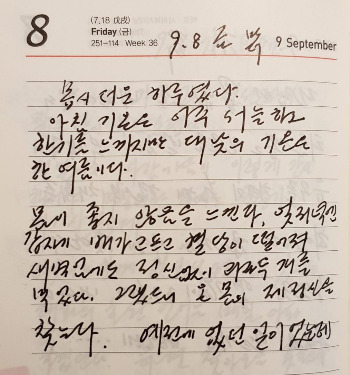 8
(7.18 戊戌)
Friday (금)
251-114 Week 36
9.8 금
9 September
몹시 더운 하루였다.
아침 기온은 아주 서늘하고
한기를 느끼지만 대낮의 기온은
한여름이다.
몸이 좋지 않음을 느낀다. 엊저녁엔
갑자기 배가 고프고 혈당이 떨어져
새벽에도 정신없이
먹었다. 그랬더니 온 몸이 제정신을
찾는다. 예전에 없던 일이